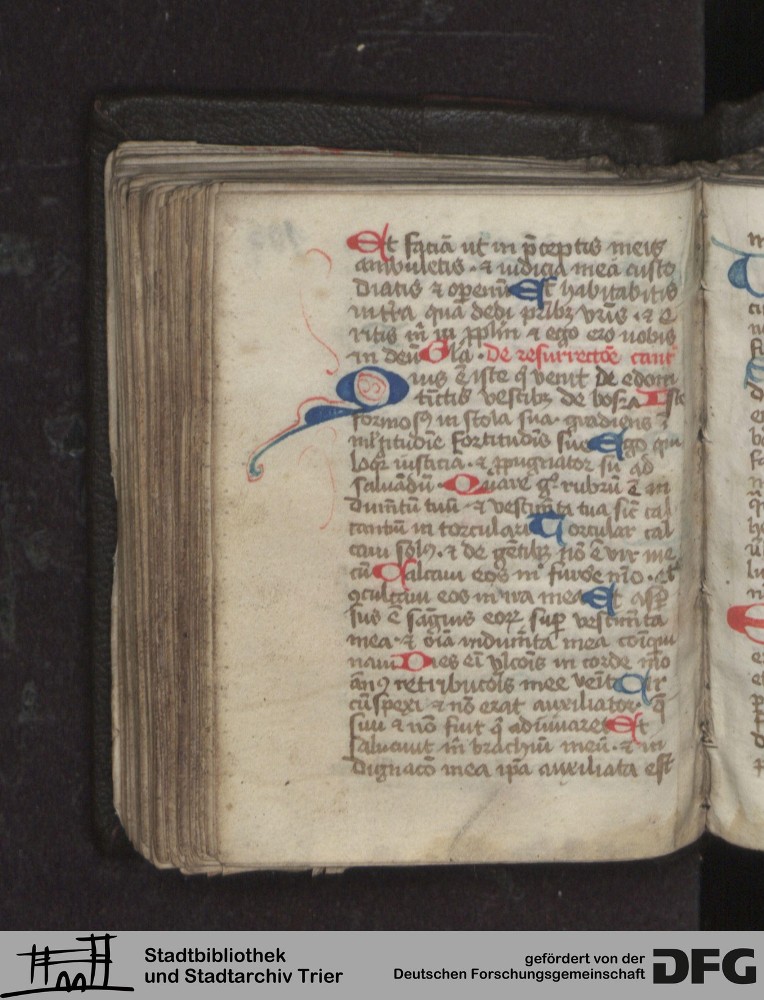 Et faciā ut in p̄ceptis meis
ambuletis · ⁊ iudicia mea custo
diatis ⁊ operemī Et habitabitis
in tr̄a quā dedi pr̄ibꝫ vr̄is · ⁊ e
ritis m̄ in pp̄lm ⁊ ego ero uobis
in deū Gl̄a · De resurrectōe cant
Quis ē iste q̇ venit de edom
tīctis vestibꝫ de bosra Iste
formosꝰ in stola sua · gradiens ī
ml̓titudīe fortitudīs sue Ego qui
loqͬ iusticiā · ⁊ ꝓpugnator sū ad
saluādū · Quare gͦ rubrū ē in
dumētū tuū · ⁊ vestimēta tua sic̄ cal
cantiū in torculari Torcular cal
caui solꝰ · ⁊ de gētibꝫ nō ē vir me
cū Calcaui eos in furore meo · et
ꝯculcaui eos in ira mea Et asp̄
sus ē sāguis eoꝝ suꝑ vestimēta
mea · ⁊ oīa indumēta mea coīqui
naui Dies ei vltōis in corde meo
ānꝰ retributōis mee venit Cir
cūspexi ⁊ nō erat auxiliator · q̄
siui ⁊ nō fuit q̇ adiuuaret Et
saluauit m̄ brachiū meū · ⁊ in
dignacō mea ip̄a auxiliata est
Stadtbibliothek
und Stadtarchiv Trier
gefördert von der
Deutschen Forschungsgemeinschaft
DFG